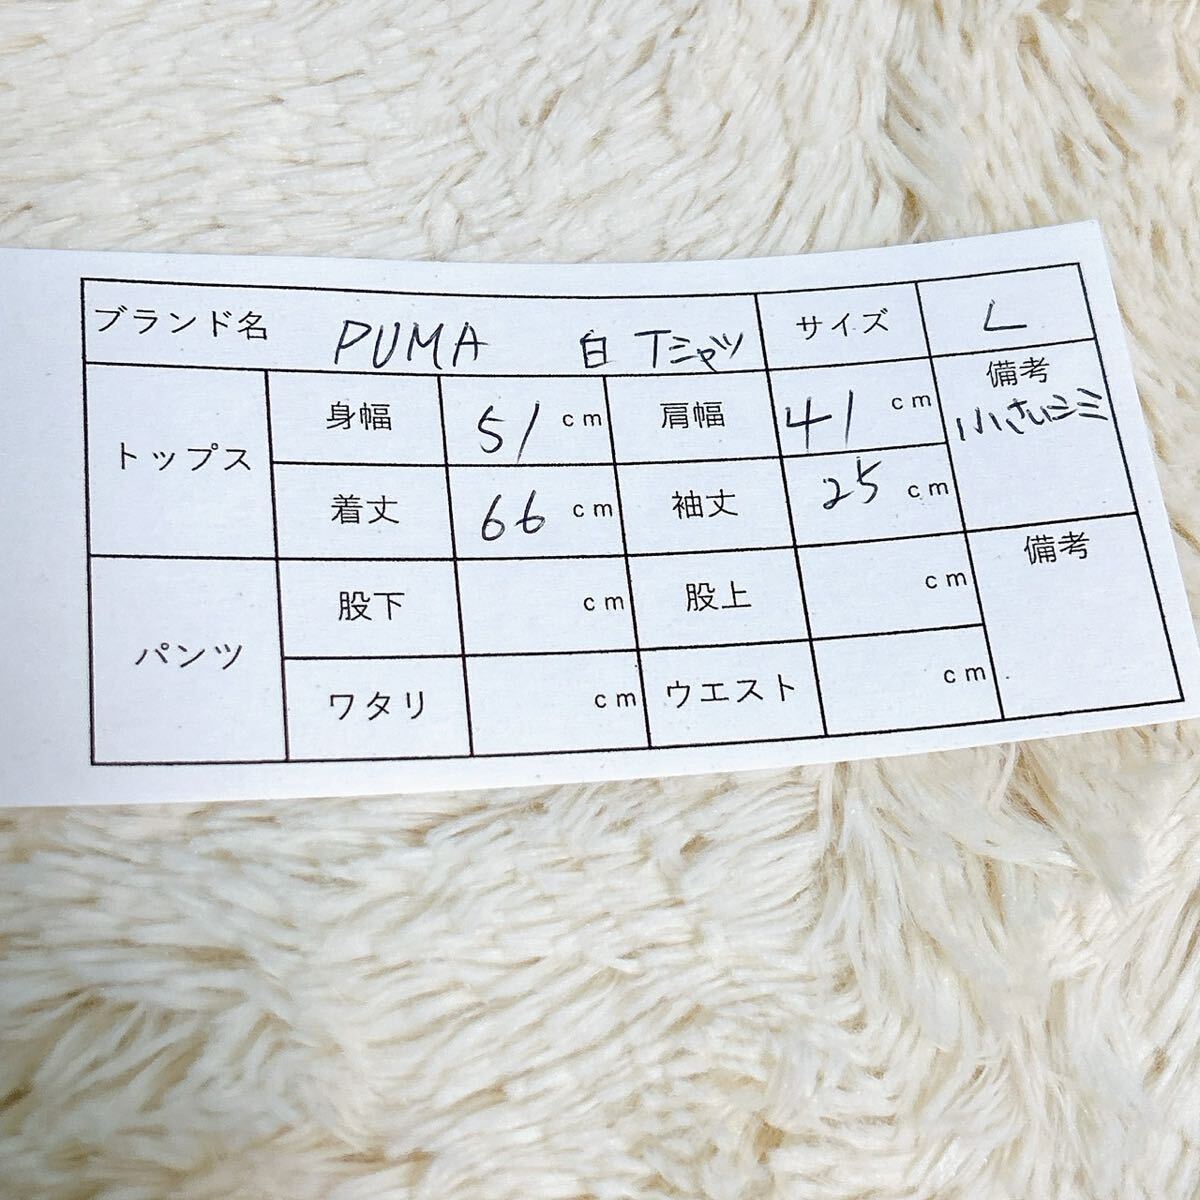 ブランド名 PUMA 白 Tシャツ サイズ L
トップス 身幅 51 cm 肩幅 41 cm 備考
小さいシミ
着丈 66 cm 袖丈 25 cm
パンツ 股下 cm 股上 cm 備考
ワタリ cm ウエスト cm